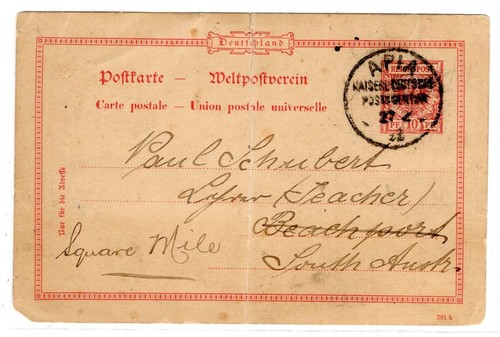 Deutschland
Postkarte – Weltpostverein
Carte postale – Union postale universelle
REICHSPOST
10 PF 10 PF
APIA
KAISERL. DEUTSCHE
POSTAGENTUR
27
Nur für die Adresse
Paul Schubert
(Teacher)
Beachport
South Austr.
Square Mile
791 h